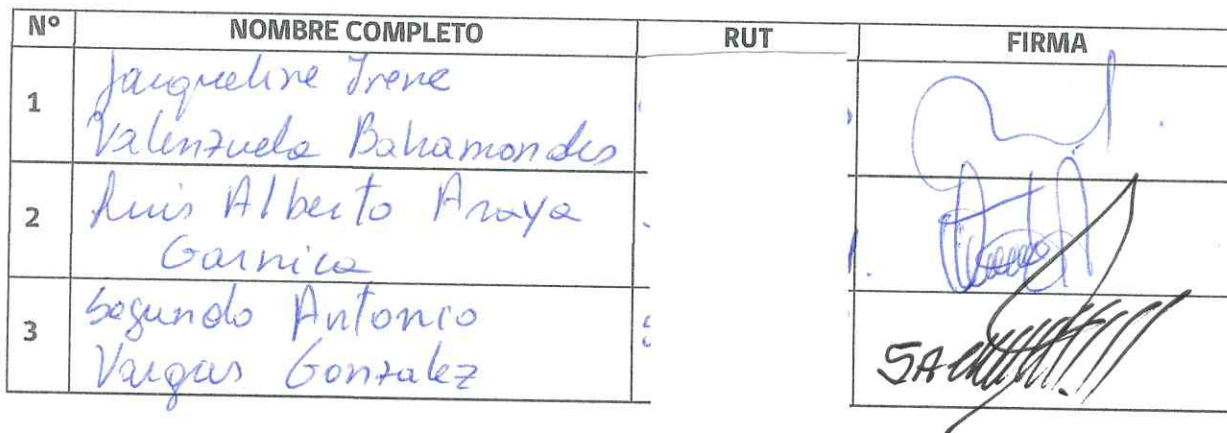 Nº NOMBRE COMPLETO RUT FIRMA
1 Jacqueline Irene
Valenzuela Bahamondes
2 Luis Alberto Araya
Garnica
3 Segundo Antonio
Vargas Gonzalez